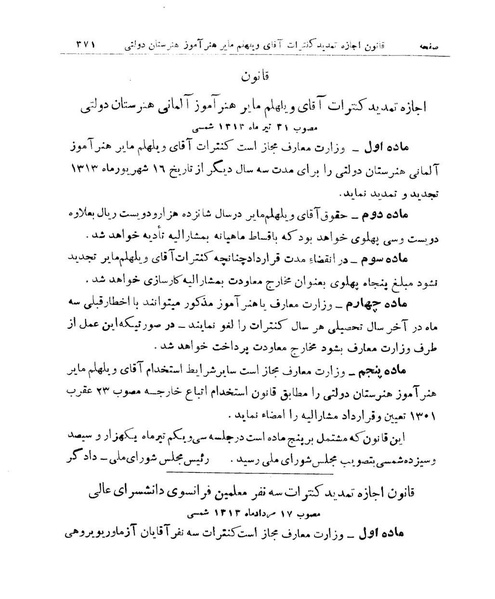 صفحه قانون اجازه تمدید کنترات آقای ویلهلم مایر هنر آموز هنرستان دولتی ۳۷۱
قانون
اجازه تمدید کنترات آقای ویلهلم مایر هنر آموز آلمانی هنرستان دولتی
مصوب ۳۱ تیر ماه ۱۳۱۳ شمسی
ماده اول ـ وزارت معارف مجاز است کنترات آقای ویلهلم مایر هنر آموز
آلمانی هنرستان دولتی را برای مدت سه سال دیگر از تاریخ ۱۶ شهریور ماه ۱۳۱۳
تجدید و تمدید نماید.
ماده دوم ـ حقوق آقای ویلهلم مایر در سال شانزده هزار و دویست ریال بعلاوه
دویست و سی پهلوی خواهد بود که باقساط ماهیانه بمشارالیه تأدیه خواهد شد .
ماده سوم ـ در انقضاء مدت قرارداد چنانچه کنترات آقای ویلهلم مایر تجدید
نشود مبلغ پنجاه پهلوی بعنوان مخارج معاودت بمشارالیه کارسازی خواهد شد .
ماده چهارم ـ وزارت معارف یا هنر آموز مذکور میتوانند با اخطار قبلی سه
ماه در آخر سال تحصیلی هر سال کنترات را لغو نمایند ـ در صورتیکه این عمل از
طرف وزارت معارف بشود مخارج معاودت پرداخت خواهد شد .
ماده پنجم ـ وزارت معارف مجاز است سایر شرایط استخدام آقای ویلهلم مایر
هنر آموز هنرستان دولتی را مطابق قانون استخدام اتباع خارجه مصوب ۲۳ عقرب
۱۳۰۱ تعیین و قرارداد مشارالیه را امضاء نماید .
این قانون که مشتمل بر پنج ماده است در جلسه سی و یکم تیر ماه یکهزار و سیصد
و سیزده شمسی بتصویب مجلس شورای ملی رسید . رئیس مجلس شورای ملی ـ دادگر
قانون اجازه تمدید کنترات سه نفر معلمین فرانسوی دانشسرای عالی
مصوب ۱۷ مرداد ماه ۱۳۱۳ شمسی
ماده اول ـ وزارت معارف مجاز است کنترات سه نفر آقایان آزماور یویروهی